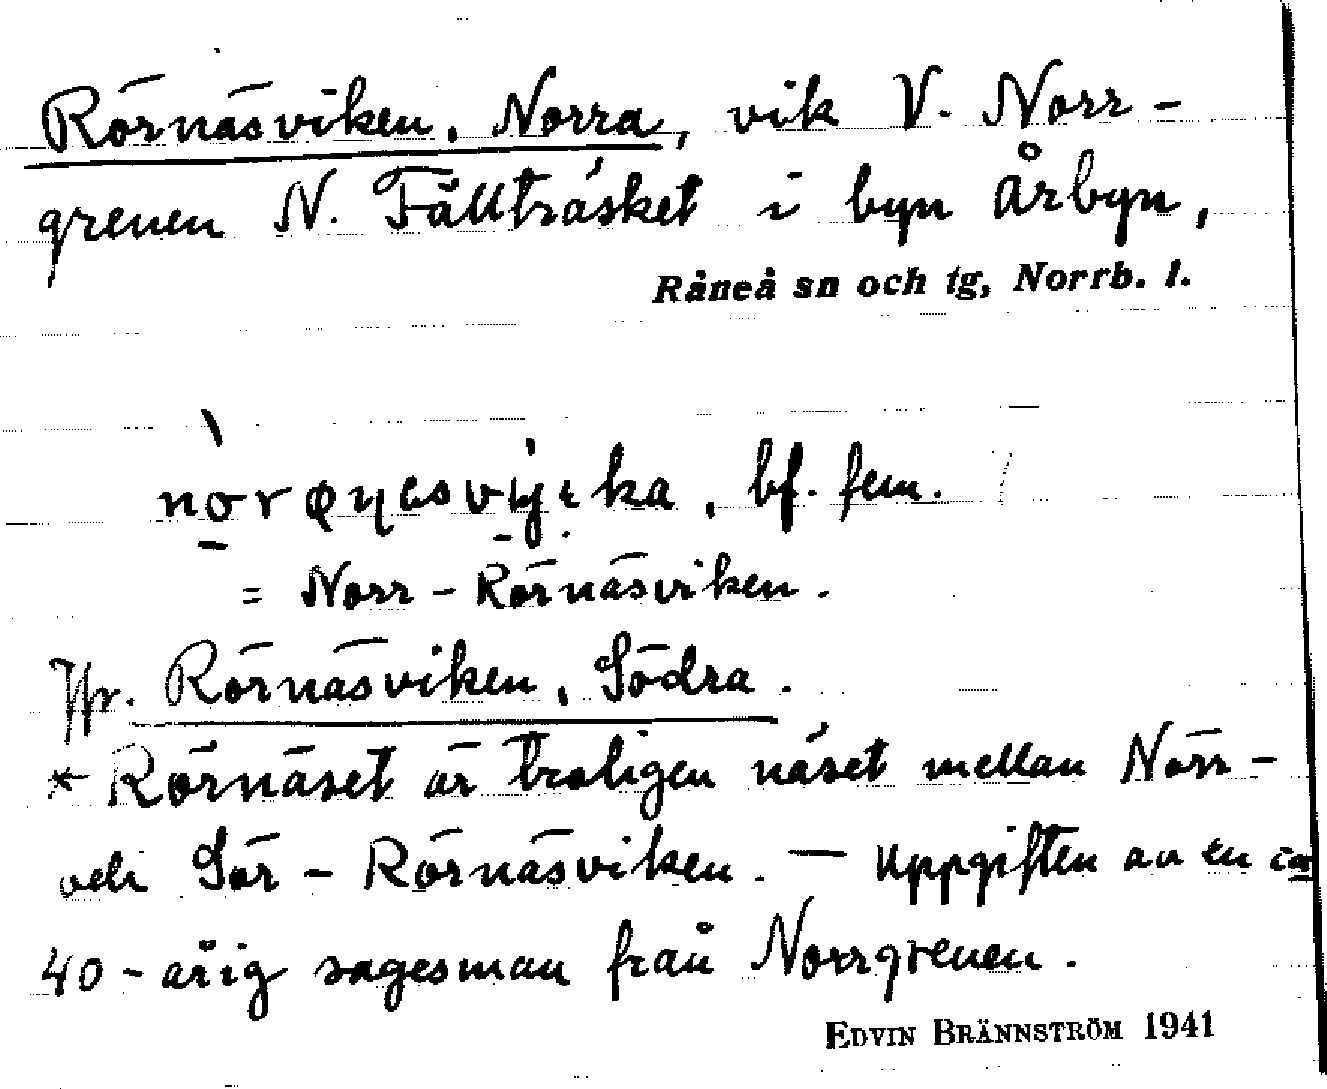 Rörnäsviken, Norra, vik V. Norr-
grenen N. Fällträsket i byn Årbyn,
Råneå sn och tg, Norrb. l.
bf. fem.
= Norr-Rörnäsviken.
Jfr. Rörnäsviken, Södra.
* Rörnäset är troligen näset mellan Norr-
och Sör-Rörnäsviken. — Uppgiften av en ca
40-årig sagesman från Norrgrenen.
EDVIN BRÄNNSTRÖM 1941